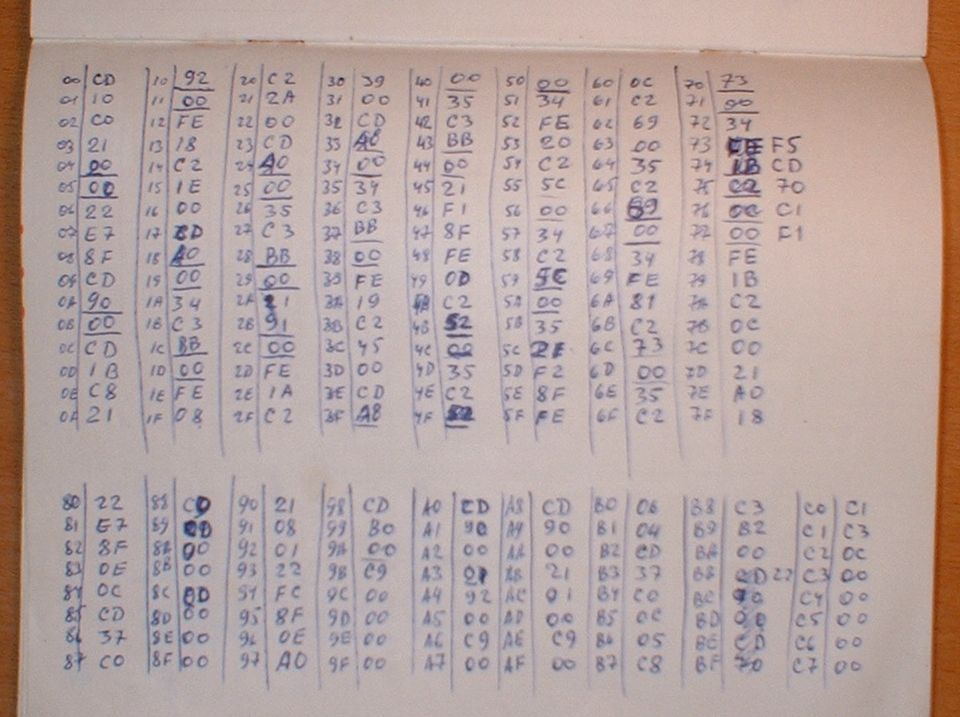 00 CD 10 92 20 C2 30 39 40 00 50 00 60 0C 70 73
01 10 11 00 21 2A 31 00 41 35 51 34 61 C2 71 00
02 C0 12 FE 22 00 32 CD 42 C3 52 FE 62 69 72 34
03 21 13 18 23 CD 33 A8 43 BB 53 20 63 00 73 F5
04 00 14 C2 24 A0 34 00 44 00 54 C2 64 35 74 CD
05 00 15 1E 25 00 35 34 45 21 55 5C 65 C2 75 70
06 22 16 00 26 35 36 C3 46 F1 56 00 66 89 76 C1
07 E7 17 CD 27 C3 37 BB 47 8F 57 34 67 00 77 00 F1
08 8F 18 A0 28 BB 38 00 48 FE 58 C2 68 34 78 FE
09 CD 19 00 29 00 39 FE 49 0D 59 5C 69 FE 79 1B
0A 90 1A 34 2A 21 3A 19 4A C2 5A 00 6A 81 7A C2
0B 00 1B C3 2B 91 3B C2 4B 52 5B 35 6B C2 7B 0C
0C CD 1C BB 2C 00 3C 45 4C 00 5C 2F 6C 73 7C 00
0D 1B 1D 00 2D FE 3D 00 4D 35 5D F2 6D 00 7D 21
0E C8 1E FE 2E 1A 3E CD 4E C2 5E 8F 6E 35 7E A0
0F 21 1F 08 2F C2 3F A8 4F 5F FE 6F C2 7F 18
80 22 88 CD 90 21 98 CD A0 CD A8 CD B0 06 B8 C3 C0 C1
81 E7 89 91 08 99 B0 A1 90 A9 90 B1 04 B9 B2 C1 C3
82 8F 8A 00 92 01 9A 00 A2 00 AA 00 B2 CD BA 00 C2 0C
83 0E 8B 00 93 22 9B C9 A3 21 AB 21 B3 37 BB C3 00
84 0C 8C 94 FC 9C 00 A4 92 AC 91 B4 C0 BC C4 00
85 CD 8D 00 95 8F 9D 00 A5 00 AD 00 B5 0C BD C5 00
86 37 8E 00 96 0E 9E 00 A6 C9 AE C9 B6 05 BE CD C6 00
87 C0 8F 00 97 A0 9F 00 A7 00 AF 00 B7 C8 BF 70 C7 00